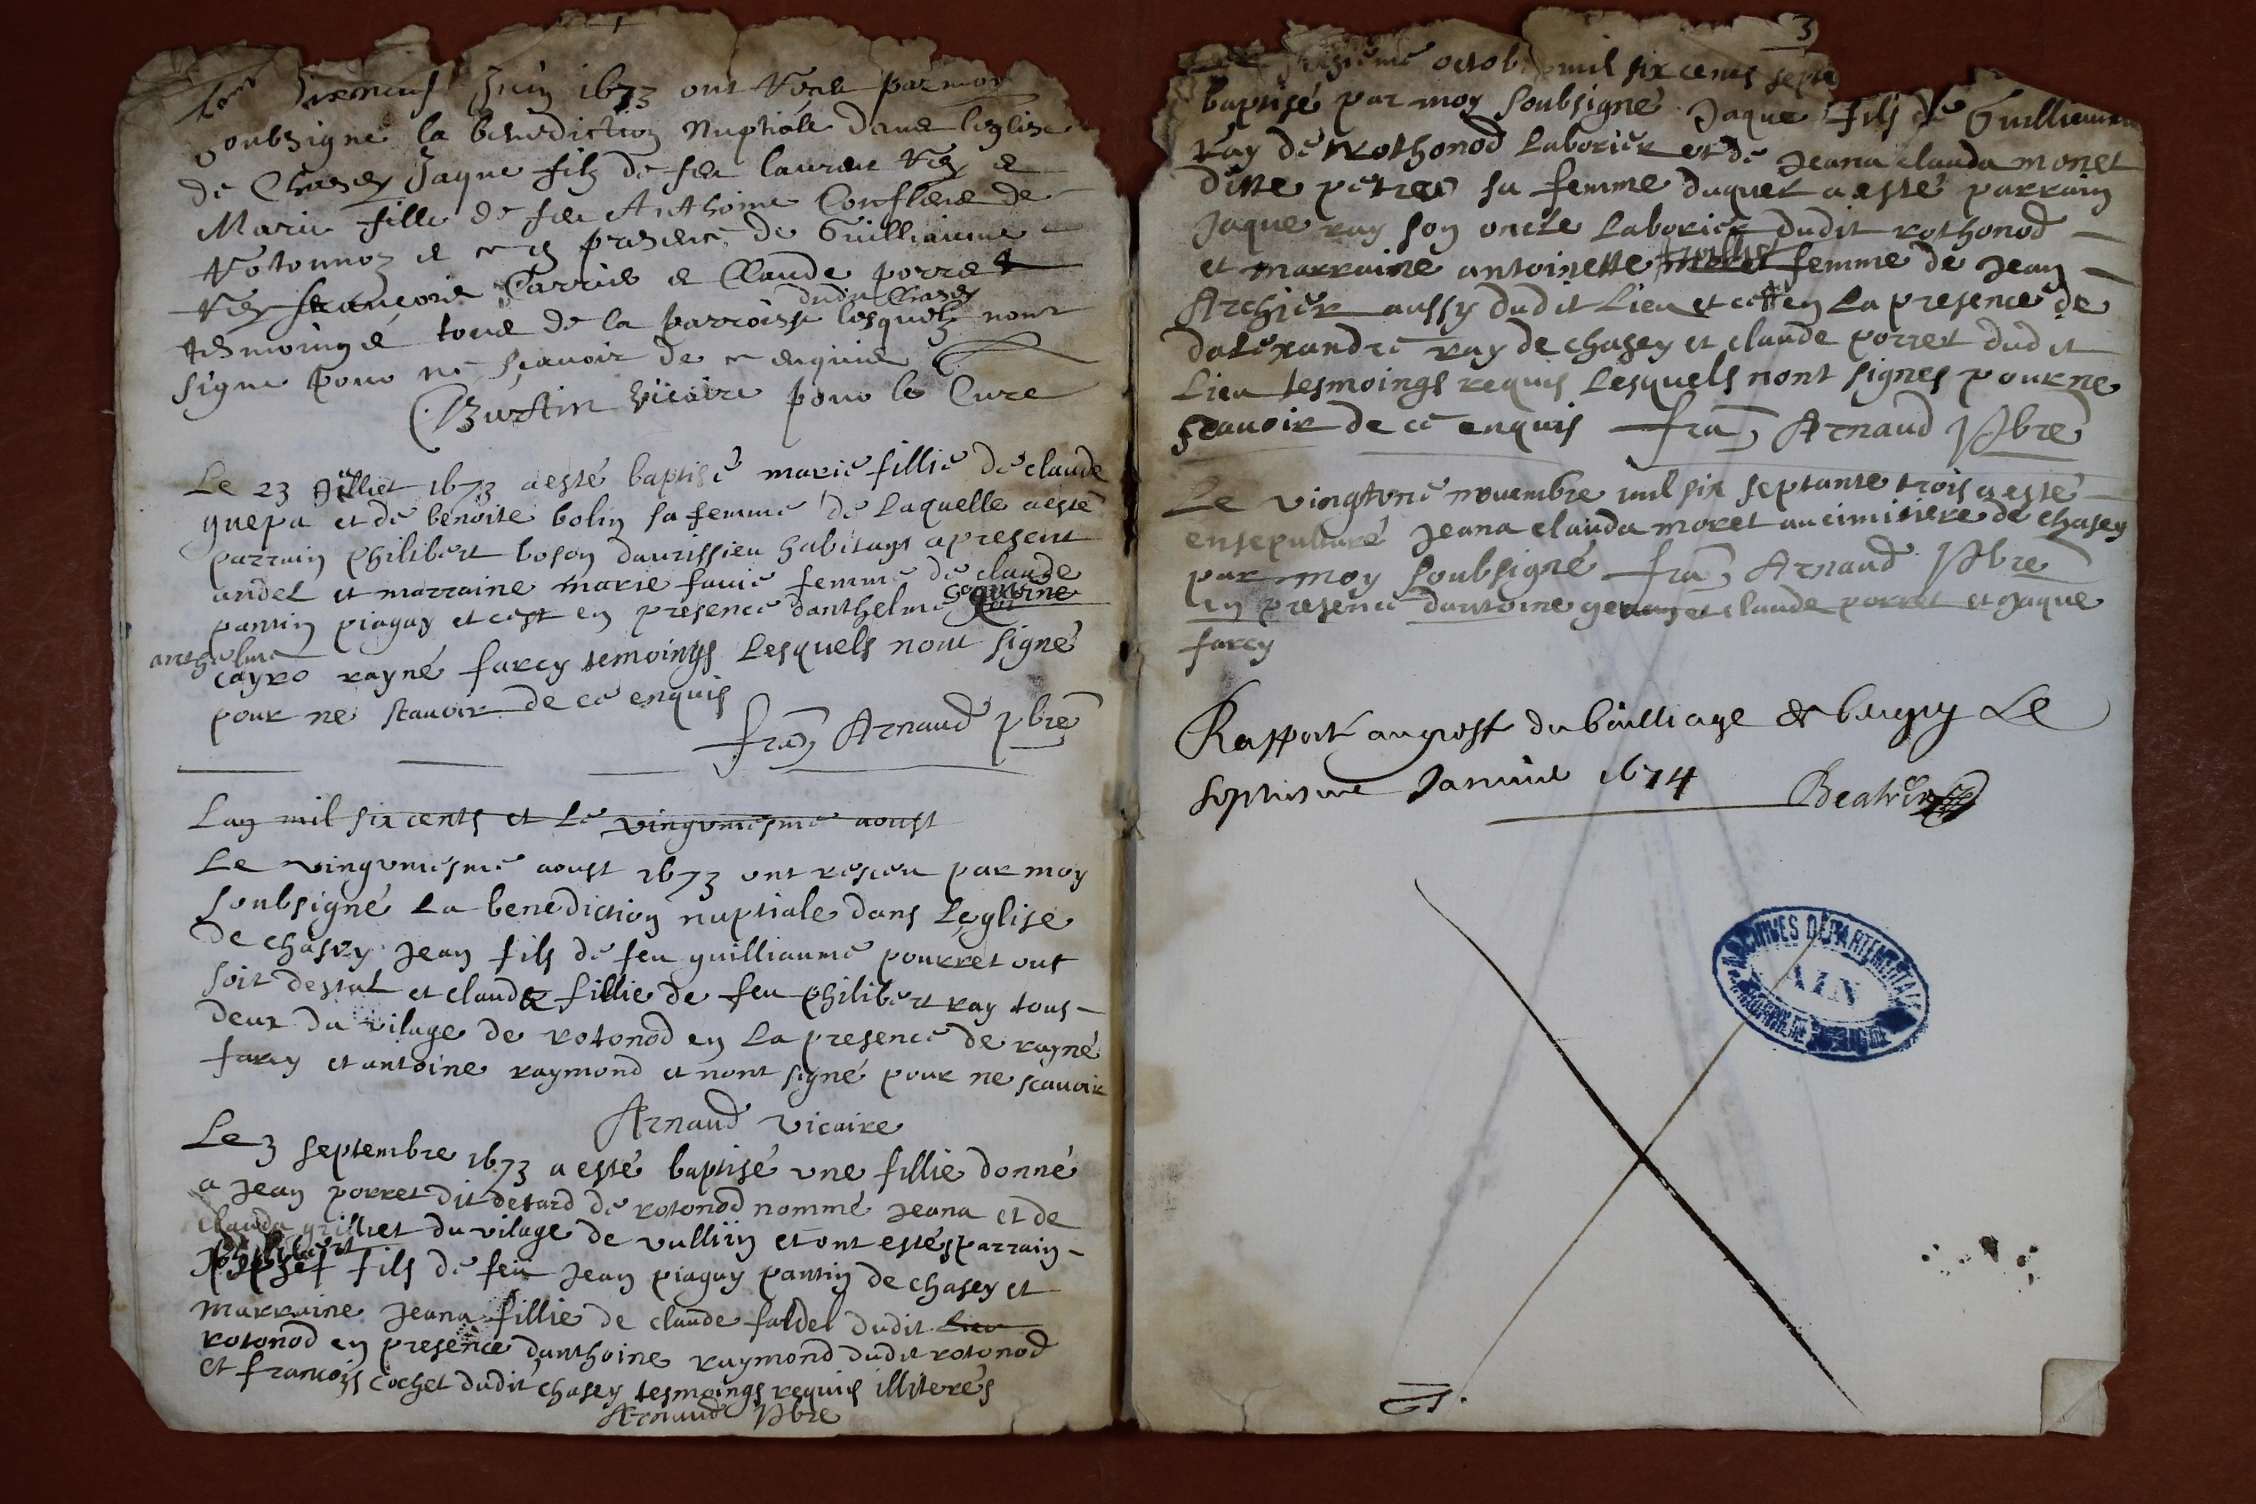 Juin 1673 ont Receu par moy
soubsigné la benediction Nuptiale dans leglise
de Chasey Jaque filz de feu laurent Rey et
Marie fille de feu Anthoine Conflens de
Rotonnoz et ce en presence de Guilliaume
Rey françois Carrier et Claude porret
dudit Chasey
tesmoings tous de la parroisse lesquelz nont
signe pour ne sçavoir de ce enquis
Burtin vicaire pour le Cure
Le 23 Juilliet 1673 a esté baptisé marie fillie de claude
guepa et de benoite bolin sa femme de Laquelle a esté
parrain philibert boson daurissieu habitant apresent
andel et marraine marie favie femme de claude
pantin piaguy et cest en presence danthelme
anthelme
cayro rayné farcy temoings Lesquels nont signé
pour ne scauoir de ce enquis
fran Arnaud pbre
Lan mil six cents et Le vingvniesme aoust
Le vingvniesme aoust 1673 ont resceu par moy
soubsigné La benediction nuptiale dans Leglise
de chasey jean fils de feu guilliaume pourret ous
soit destat et clauda fillie de feu philibert ray tous
deux du vilage de rotonod en La presence de rayné
farcy et antoine raymond et nont signé pour ne scauoir
Arnaud vicaire
Le 3 septembre 1673 a esté baptisé une fillie donné
a jean porret dit detard de rotonod nommé jeana et de
clauda grilliet du vilage de vulliin et ont estés parrain
philibert
fils de feu jean piaguy pantin de chasey et
marraine jeana fillie de claude faldel dudit Lieu
rotonod en presence danthoine raymond dudit rotonod
et françois cochet dudit chasey tesmoings requis illiterés
Arnaud pbre
3
octob mil six cents septa
baptisé par moy soubsigné Jaque fils de Guilliaume
Ray de Rothonod Laborier et de jeana clauda monet
ditte petres sa femme duquel a esté parrain
jaque ray son oncle Laborier dudit rothonod
et marraine antoinette femme de jean
Archier aussy dudit Lieu et cest en La presence de
dalexandre ray de chasey et claude porret dudit
Lieu tesmoings requis Lesquels nont signes pour ne
scauoir de ce enquis fran Arnaud pbre
Le vingtvne nouembre mil six septante trois a esté
ensepulturé jeana clauda moret au cimitiere de chasey
par moy soubsigné fran Arnaud pbre
en presence dantoine geman et claude porret et jaque
farcy
Rapporté au greffe du bailliage de beugey Le
septiesme Januier 1674
ARCHIVES DÉPARTEMENTALES
AIN